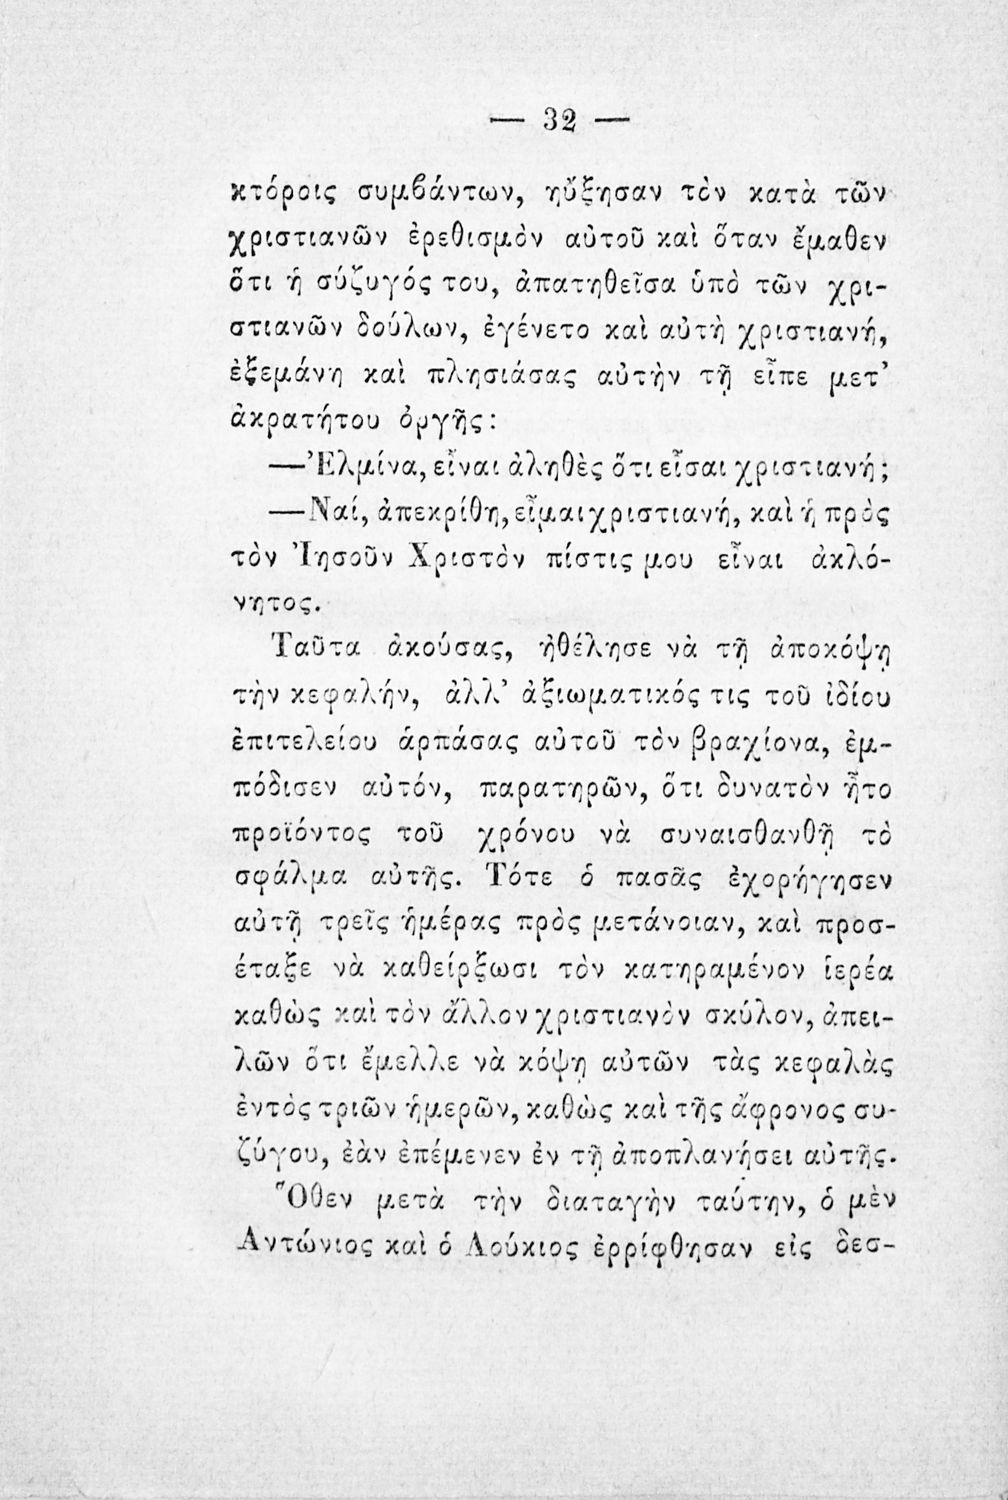 — 32 —
κτόροις συμβάντων, ηὔξησαν τὸν κατὰ τῶν
χριστιανῶν ἐρεθισμὸν αὐτοῦ καὶ ὅταν ἔμαθεν
ὅτι ἡ σύζυγός του, ἀπατηθεῖσα ὑπὸ τῶν χρι-
στιανῶν δούλων, ἐγένετο καὶ αὐτὴ χριστιανή,
ἐξεμάνη καὶ πλησιάσας αὐτὴν τῇ εἶπε μετ’
ἀκρατήτου ὀργῆς:
—Ἐλμίνα, εἶναι ἀληθὲς ὅτι εἶσαι χριστιανή;
—Ναί, ἀπεκρίθη, εἶμαι χριστιανή, καὶ ἡ πρὸς
τὸν Ἰησοῦν Χριστὸν πίστις μου εἶναι ἀκλό-
νητος.
Ταῦτα ἀκούσας, ἠθέλησε νὰ τῇ ἀποκόψῃ
τὴν κεφαλήν, ἀλλ’ ἀξιωματικός τις τοῦ ἰδίου
ἐπιτελείου ἁρπάσας αὐτοῦ τὸν βραχίονα, ἐμ-
πόδισεν αὐτόν, παρατηρῶν, ὅτι δυνατὸν ἦτο
προϊόντος τοῦ χρόνου νὰ συναισθανθῇ τὸ
σφάλμα αὐτῆς. Τότε ὁ πασᾶς ἐχορήγησεν
αὐτῇ τρεῖς ἡμέρας πρὸς μετάνοιαν, καὶ προσ-
έταξε νὰ καθείρξωσι τὸν κατηραμένον ἱερέα
καθὼς καὶ τὸν ἄλλον χριστιανὸν σκύλον, ἀπει-
λῶν ὅτι ἔμελλε νὰ κόψῃ αὐτῶν τὰς κεφαλὰς
ἐντὸς τριῶν ἡμερῶν, καθὼς καὶ τῆς ἄφρονος συ-
ζύγου, ἐὰν ἐπέμενεν ἐν τῇ ἀποπλανήσει αὐτῆς.
Ὅθεν μετὰ τὴν διαταγὴν ταύτην, ὁ μὲν
Ἀντώνιος καὶ ὁ Λούκιος ἐρρίφθησαν εἰς δεσ-